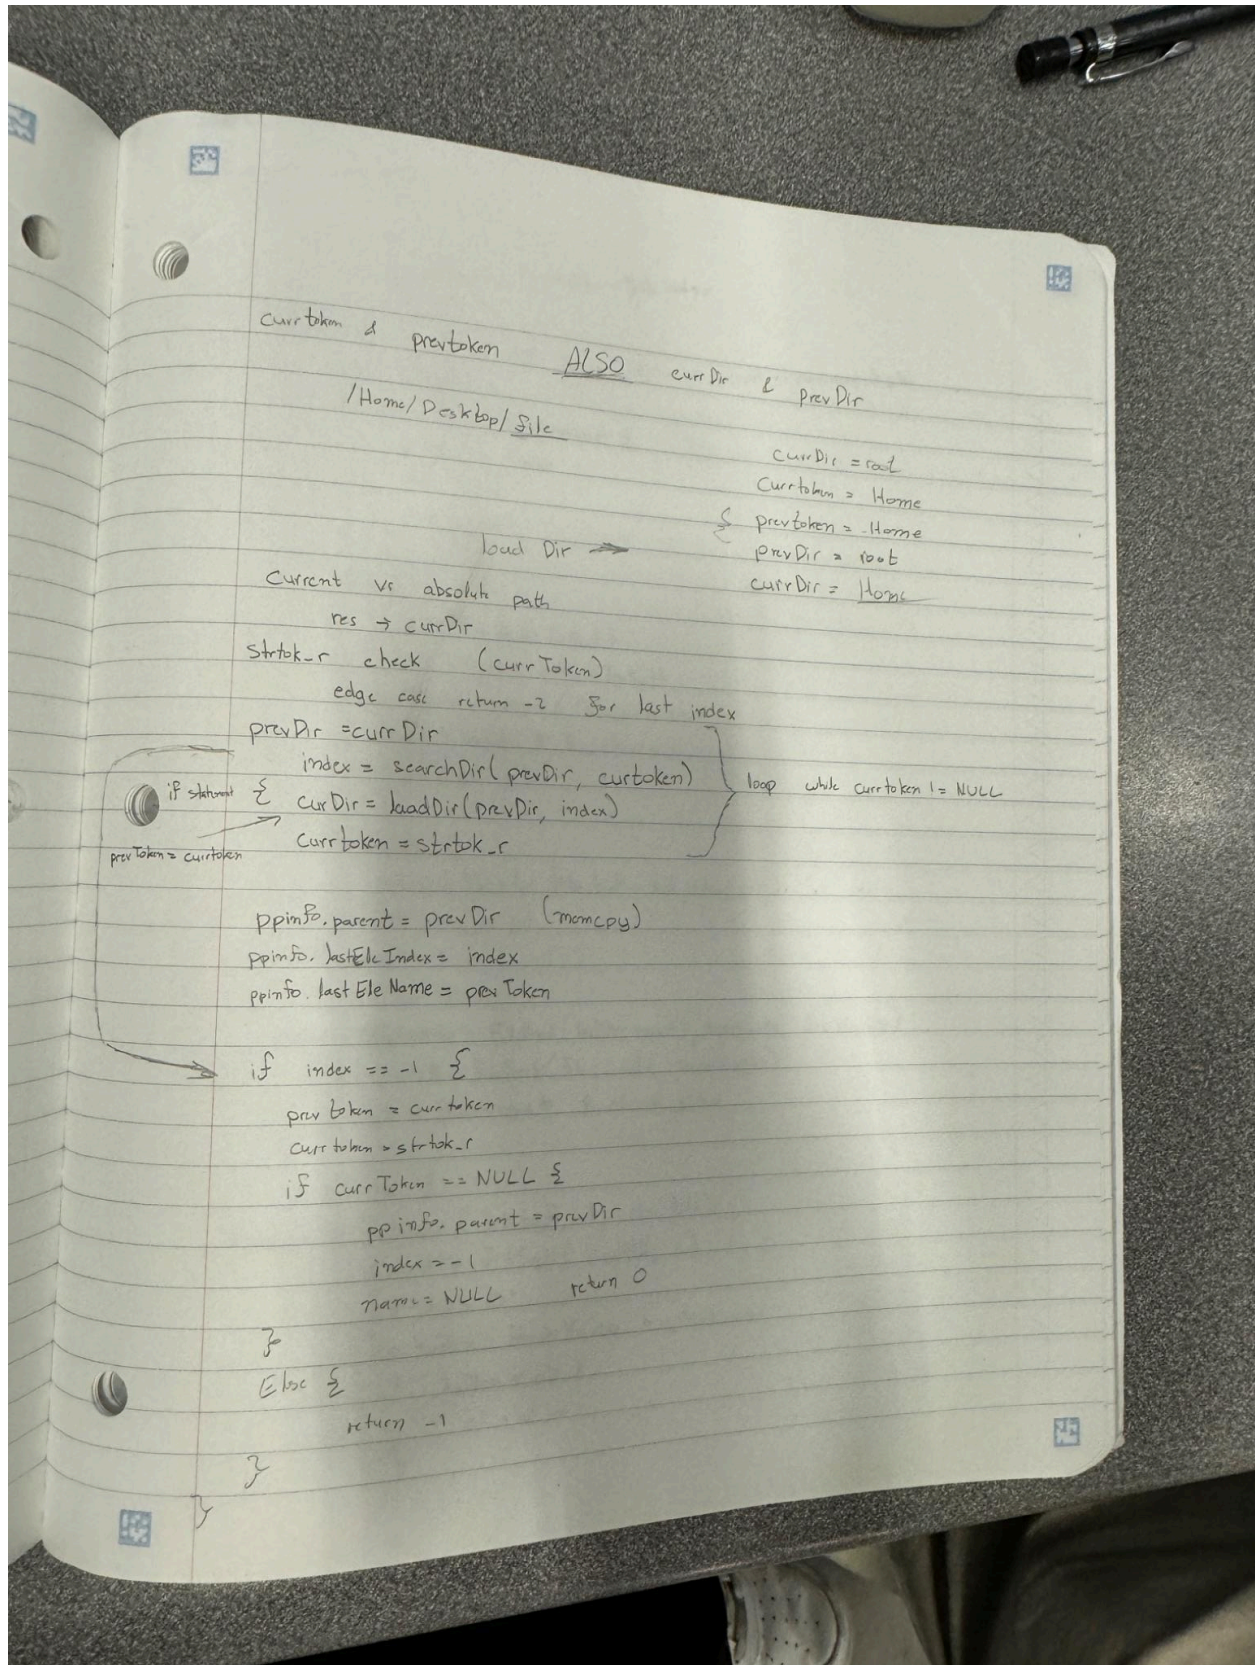 currtoken & prevtoken ALSO currDir & prevDir
/Home/Desktop/file
currDir = root
Currtoken = Home
{ prevtoken = Home
load Dir → prevDir = root
currDir = Home
Current vs absolute path
res → currDir
Strtok_r check (currToken)
edge case return -2 for last index
prevDir = currDir
index = searchDir(prevDir, curtoken)
if statement { curDir = loadDir(prevDir, index)
loop while currtoken != NULL
currtoken = strtok_r
prevToken = currtoken
ppinfo.parent = prevDir (memcpy)
ppinfo.lastEleIndex = index
ppinfo.lastEleName = prevToken
if index == -1 {
prevtoken = currtoken
currtoken = strtok_r
if currToken == NULL {
ppinfo.parent = prevDir
index = -1
name = NULL return 0
}
Else {
return -1
}
}